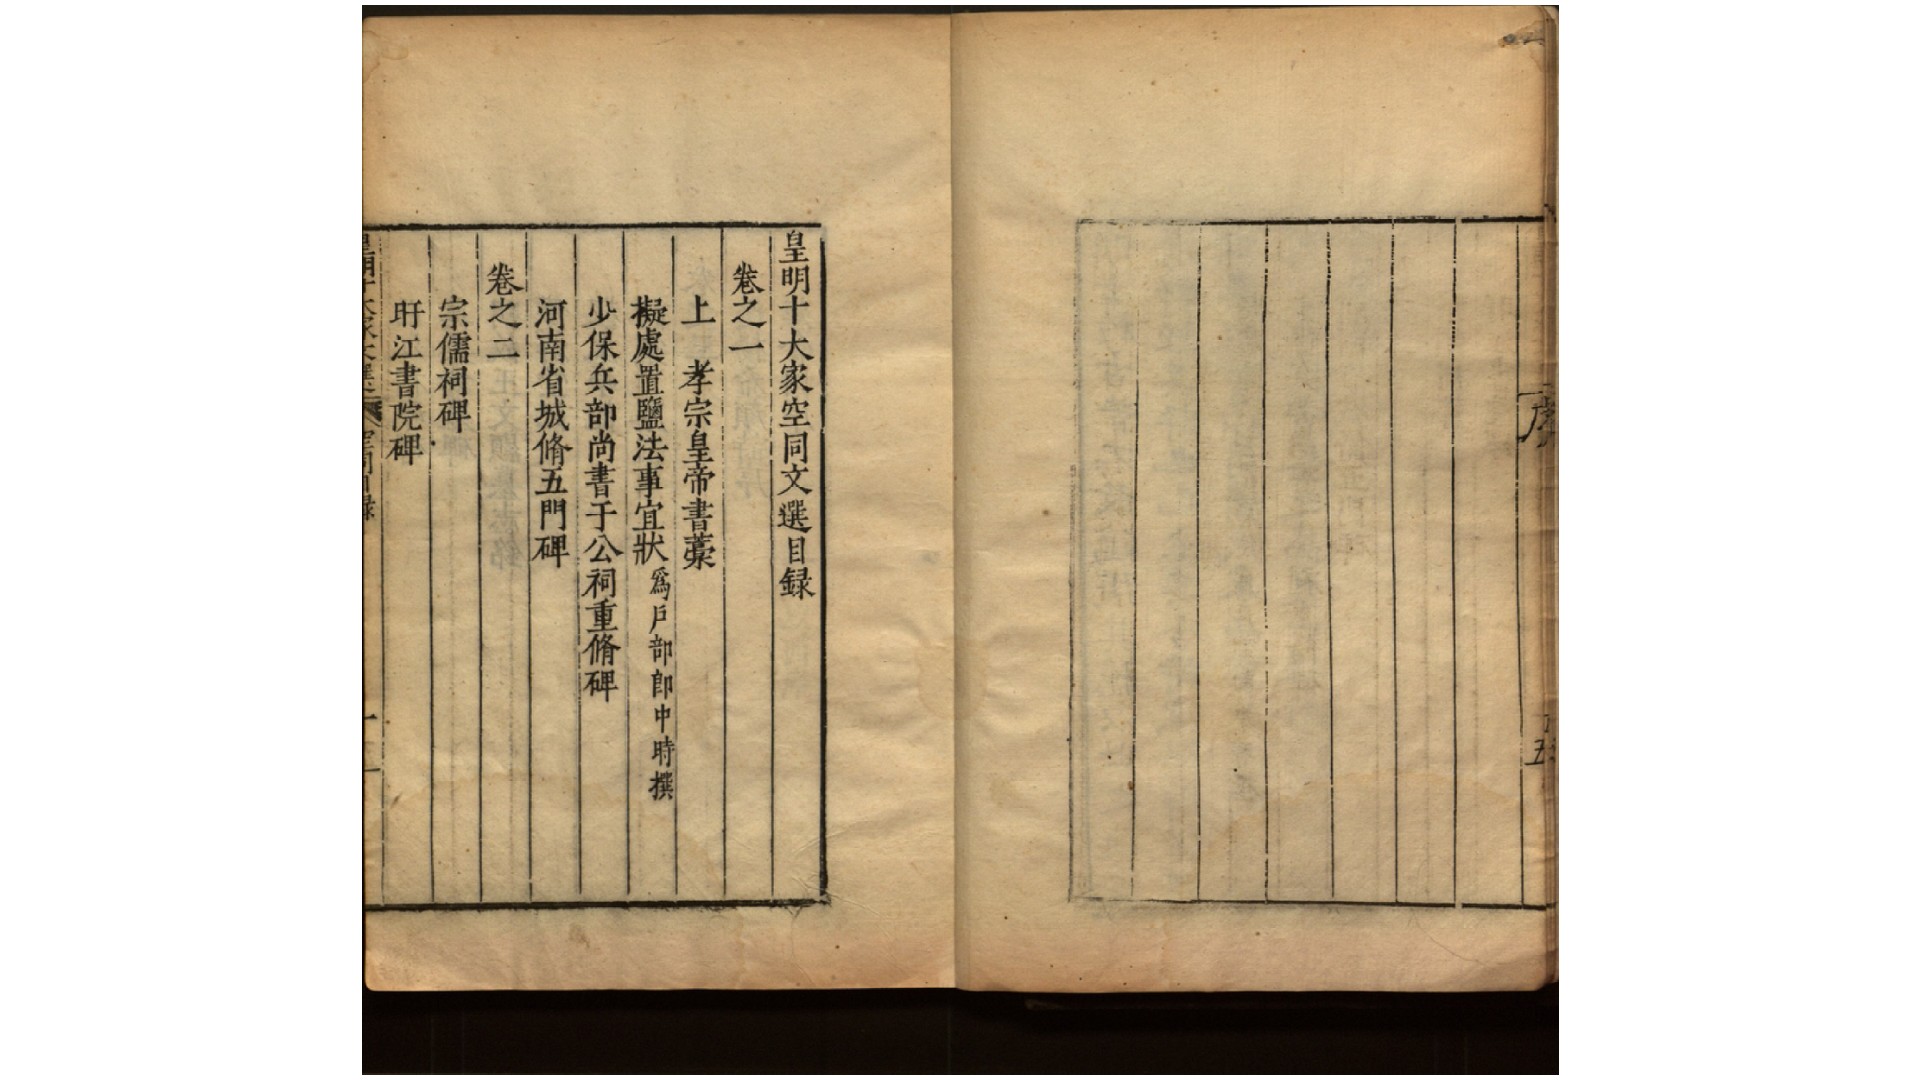 序
五
皇明十大家空同文選目録
卷之一
上　孝宗皇帝書藁
擬處置鹽法事宜狀爲戶部郎中時撰
少保兵部尚書于公祠重脩碑
河南省城脩五門碑
卷之二
宗儒祠碑
旴江書院碑